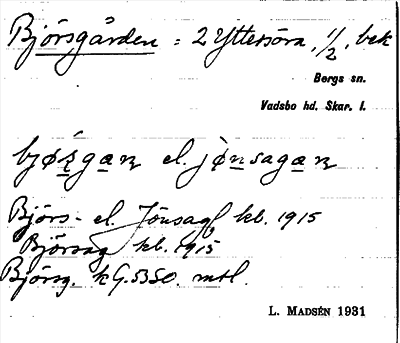 Björsgården = 2 Yttersöra, 1/2, bek
Bergs sn.
Vadsbo hd. Skar. l.
bjøʂgaɴ el. jønsagaɴ
Björs- el. Jönsag kb. 1915
Björsag kb. 1915
Björsg. k G.5350. mtl.
L. Madsén 1931